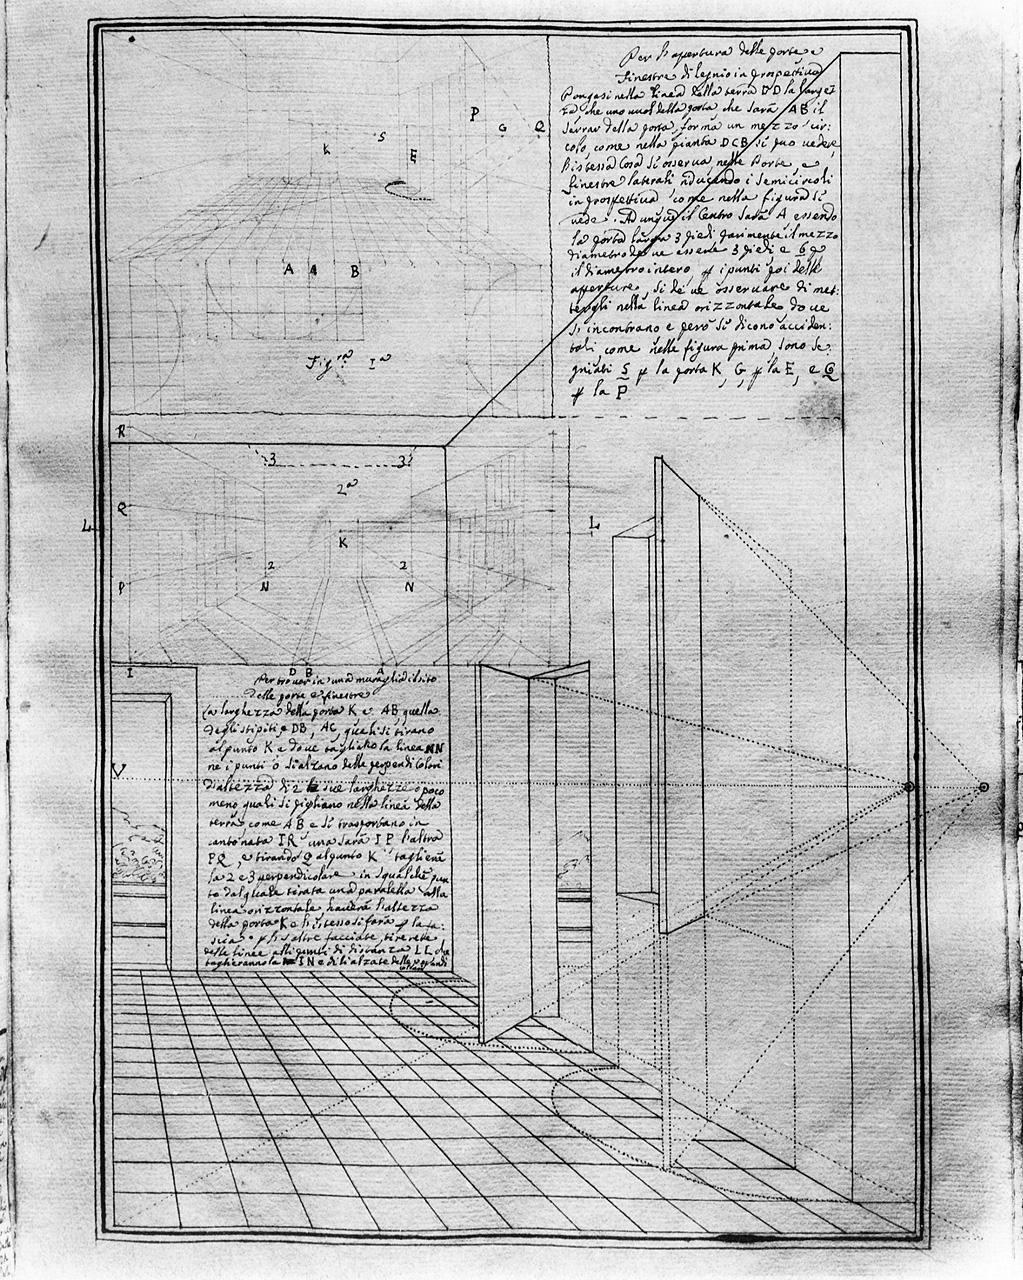 Per l'apertura delle porte e
finestre di legnio in prospettiva
Pongasi nella linea della terra DD la largez
za che uno vuol della porta che sarà AB il
serrar della porta, forma un mezzo cir:
colo, come nella pianta DCB si puo vedere,
l'istessa Cosa si osserva nelle Porte, e
finestre laterali riducendo i semicircoli
in prospettiva come nella figura si
vede. Adunque il Centro sarà A essendo
la porta larga 3 piedi parimente il mezzo
diametro deve essere 3 piedi e 6 p
il diametro intero, p i punti poi delle
aperture, si deve osservare di met:
tergli nella linea orizzontale dove
s'incontrano e però si dicono acciden:
tali, come nelle figura prima sono se
gniati S p la porta K, G, p la E, e Q
p la P
P
G
Q
S
K
E
A 4 B
Fig.ra I.a
R
3 3
2.a
Q
L L
K
2 2
P
N N
I
D B A
Per trovar in una muraglia il sito
delle porte e finestre
La larghezza della porta K è AB quella
degli stipiti è DB, AC, quali si tirano
al punto K e dove tagliano la linea NN
ne i punti o si alzano delle perpendicolari
D'altezza di 2 sue larghezze o poco
meno quali si pigliano nella linea della
terra come AB e si trasportano in
cantonata IR una sarà IP l'altra
PQ, e tirando Q al punto K taglierà
la 2 e 3 perpendicolare in qualche pun
to dal quale tirata una paralella alla
linea orizzontale haverà l'altezza
della porta K e l'istesso si farà p la fa
scia p l'altre facciate, tirerete
delle linee alli punti di distanza LL che
taglieranno la IN e di li alzate delle perpendi
colari
V